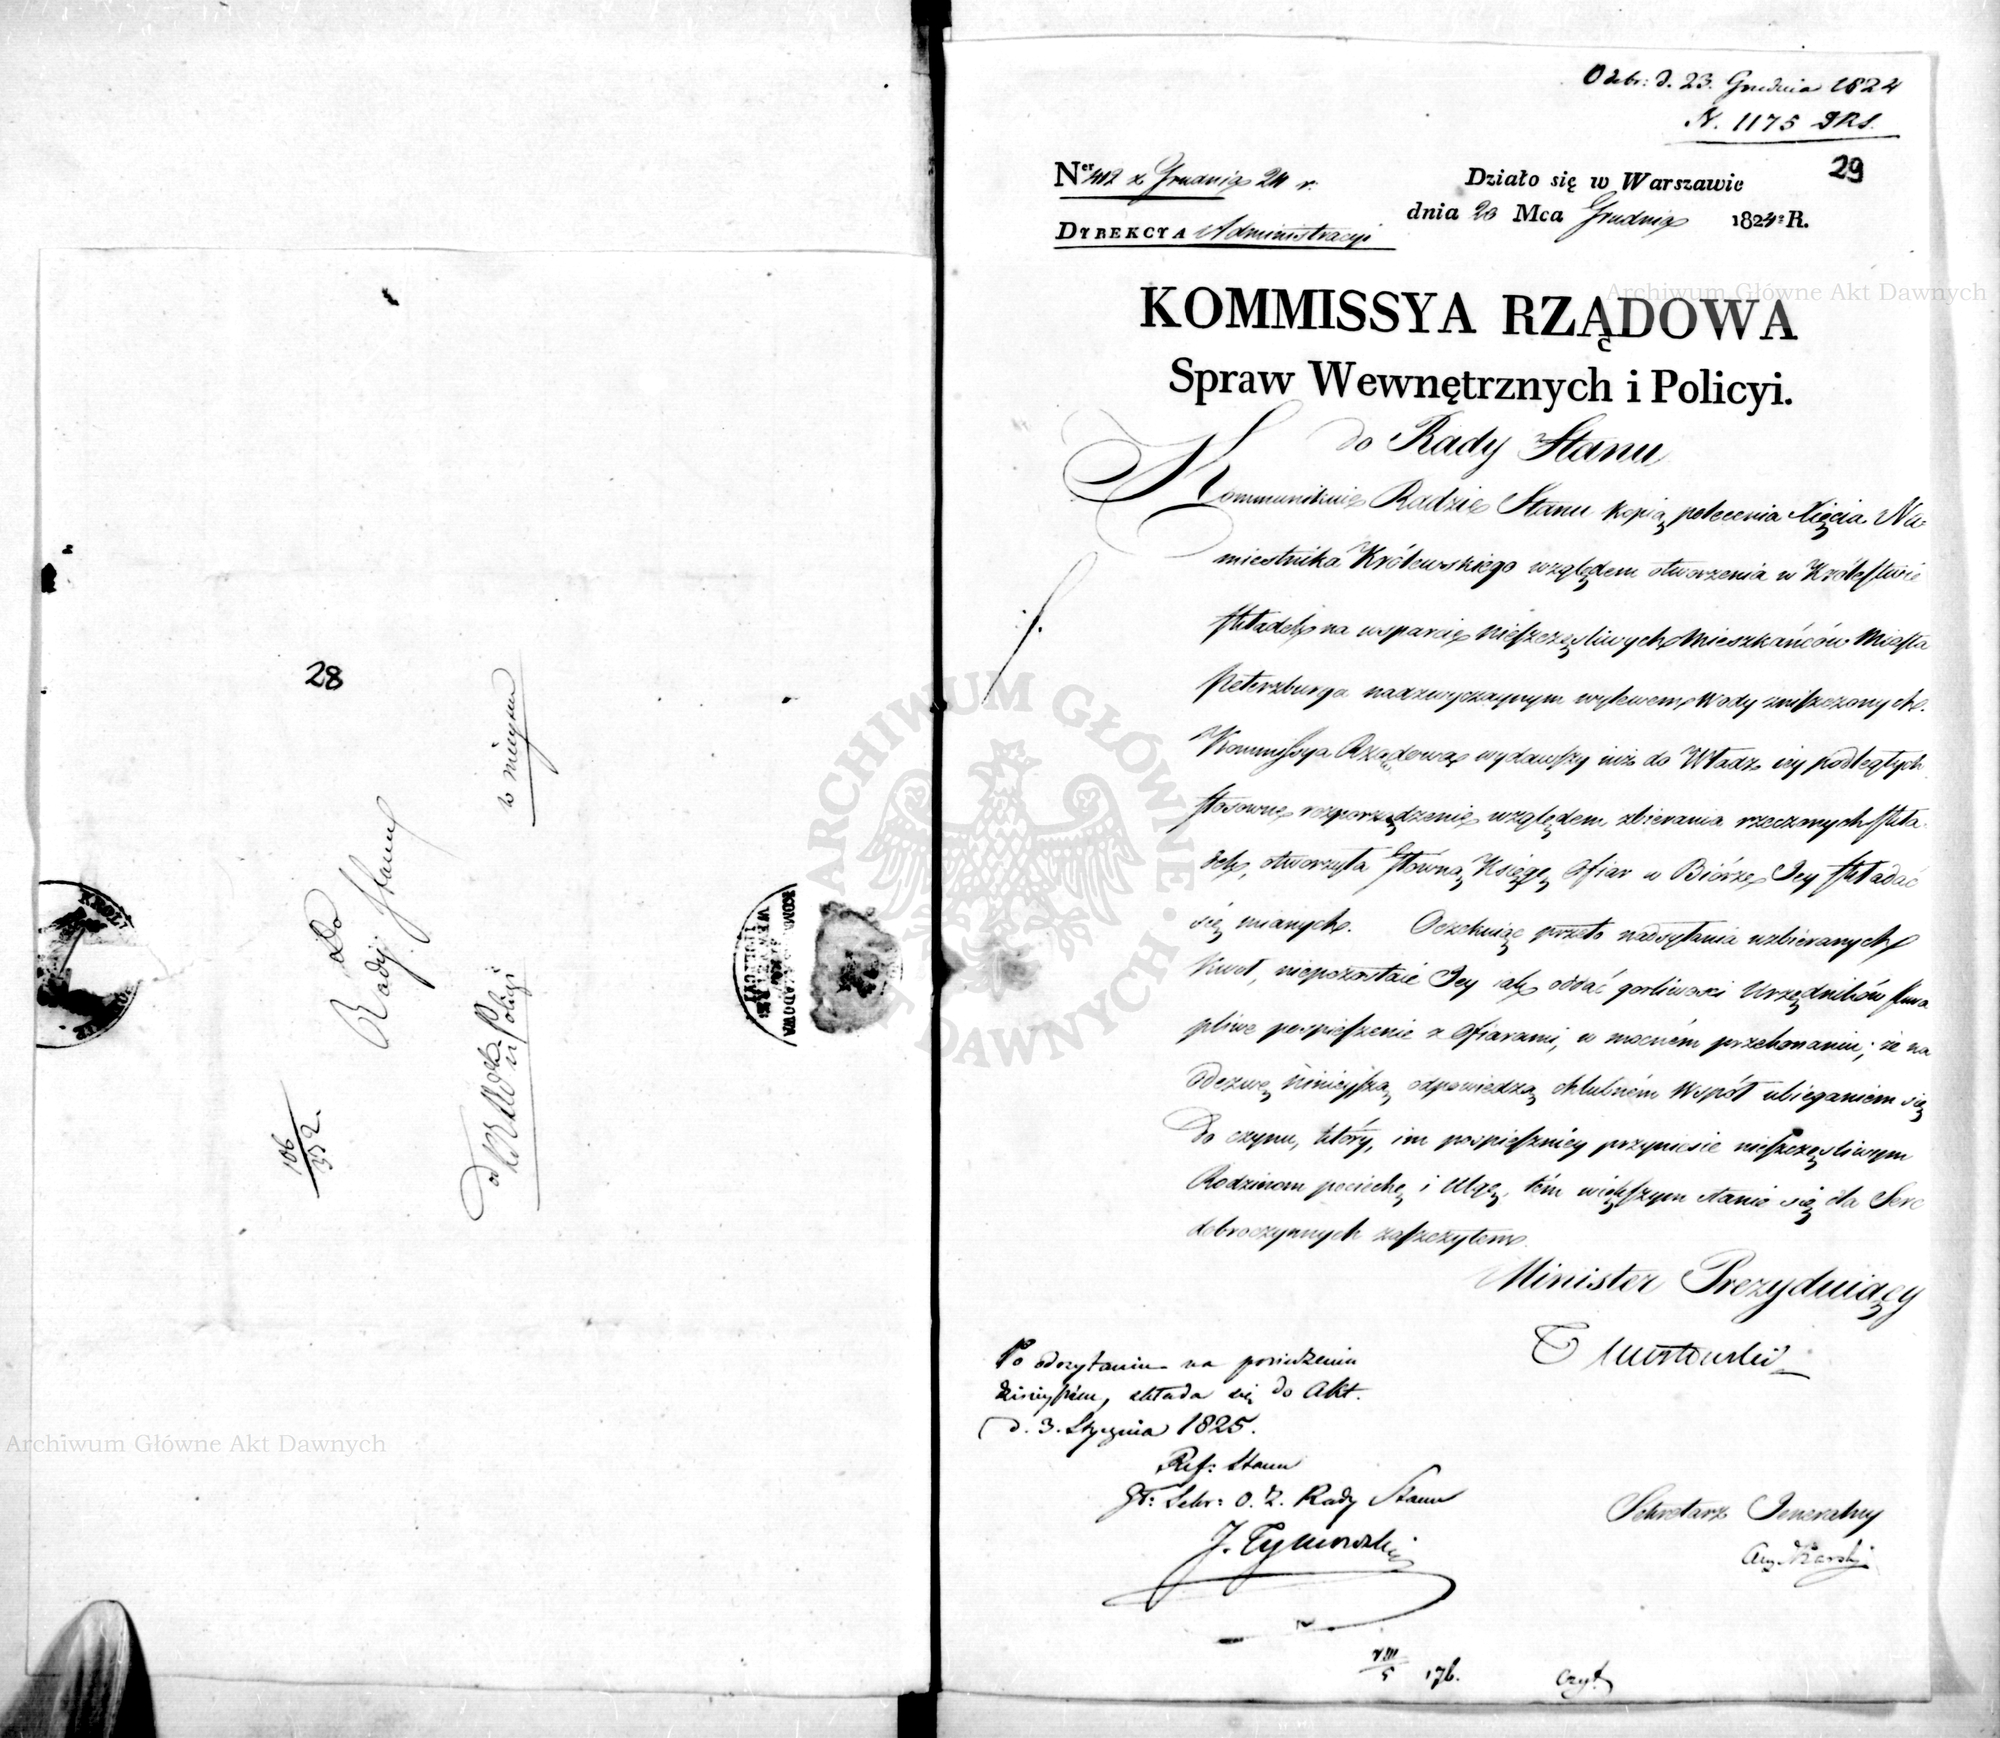 28
Do
Rady Stanu
w mieyscu
od KRSWewn.
i Policyi
106
352.
KOMM. RZĄDOWA
Odebr: d. 23. Grudnia 1824
N. 1175 DRS.
29
Ner 412 z Grudnia 24 r.
Działo się w Warszawie
dnia 20 Mca Grudnia 1824. R.
DYREKCYA Administracyi
KOMMISSYA RZĄDOWA
Spraw Wewnętrznych i Policyi.
do Rady Stanu
Kommunikuie Radzie Stanu kopią polecenia Xięcia Na-
miestnika Królewskiego względem otworzenia w Królestwie
składek na wsparcie nieszczęśliwych Mieszkańców Miasta
Petersburga nadzwyczaynym wylewem Wody zniszczonych.
Kommissya Rządowa wydawszy iuż do Władz iey podległych
stosowne rozporządzenie względem zbierania rzeczonych skła-
dek, otworzyła główną Księgę Ofiar w Biórze Jey składać
się mianych. Oczekuiąc przeto nadsyłania uzbieranych
Kwot, niepozostaie Jey iak oddać gorliwości Urzędników skwa
pliwe pospieszenie z Ofiarami, w mocném przekonaniu; że na
odezwę ninieyszą odpowiedzą chlubném Wspót ubieganiem się
do czynu, który, im pospieszniey przyniesie nieszczęśliwym
Rodzinom pociechę i ulgę, tém większym stanie się dla Serc
dobroczynnych zaszczytem.
Minister Prezyduiący
T Mostowski
Po odczytaniu na posiedzeniu
dzisieyszém, składa się do Akt.
d. 3. Stycznia 1825.
Ref: Stanu
Zt: Sekr: O. Z. Rady Stanu
J. Tymowski
Sekretarz Jeneralny
Aug Karski
VIII
5 176.
Czyt
Archiwum Główne Akt Dawnych
Archiwum Główne Akt Dawnych
ARCHIWUM GŁÓWNE AKT DAWNYCH